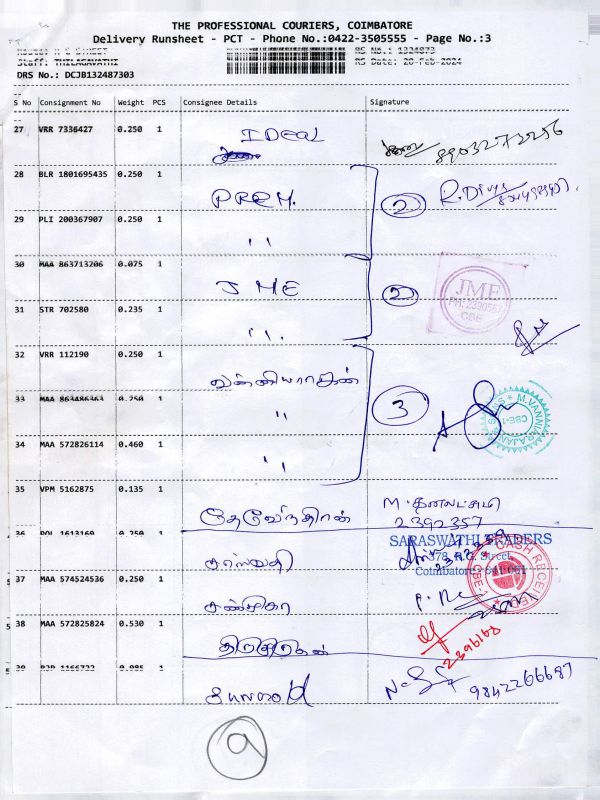 THE PROFESSIONAL COURIERS, COIMBATORE
Delivery Runsheet - PCT - Phone No.:0422-3505555 - Page No.:3
Staff: THILAGAVATHI
RS No.: 1324873
RS Date: 20-Feb-2024
DRS No.: DCJB132487303
S No Consignment No Weight PCS Consignee Details Signature
27 VRR 7336427 0.250 1 IDEAL 8903272256
28 BLR 1801695435 0.250 1 PREM. 2
29 PLI 200367907 0.250 1 ''
30 MAA 863713206 0.075 1 JME 2
JME
CBE
31 STR 702580 0.235 1 ''
32 VRR 112190 0.250 1 வன்னியராஜன்
33 MAA 863486363 0.250 1 '' 3
M. VANNIARAJAN
CBE-1
34 MAA 572826114 0.460 1 ''
35 VPM 5162875 0.135 1 தேவேந்திரன் M. தனலட்சுமி
2392357
36 POL 1613169 0.250 1 சரஸ்வதி
SARASWATHI TRADERS
378, R.G. Street,
Coimbatore - 641 001
CASH RECEIVED
CBE-1
37 MAA 574524536 0.250 1 சண்முகா
38 MAA 572825824 0.530 1
2396168
39 1166722 0.085 1 9842266687
9